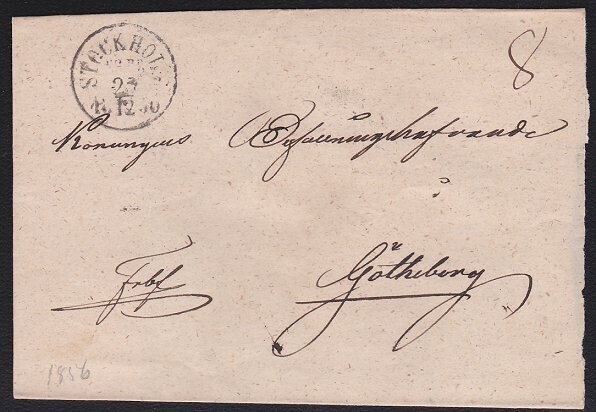 STOCKHOLM
27
12
8
Konungens Befallningshafvande
Frbf
Götheborg
1856